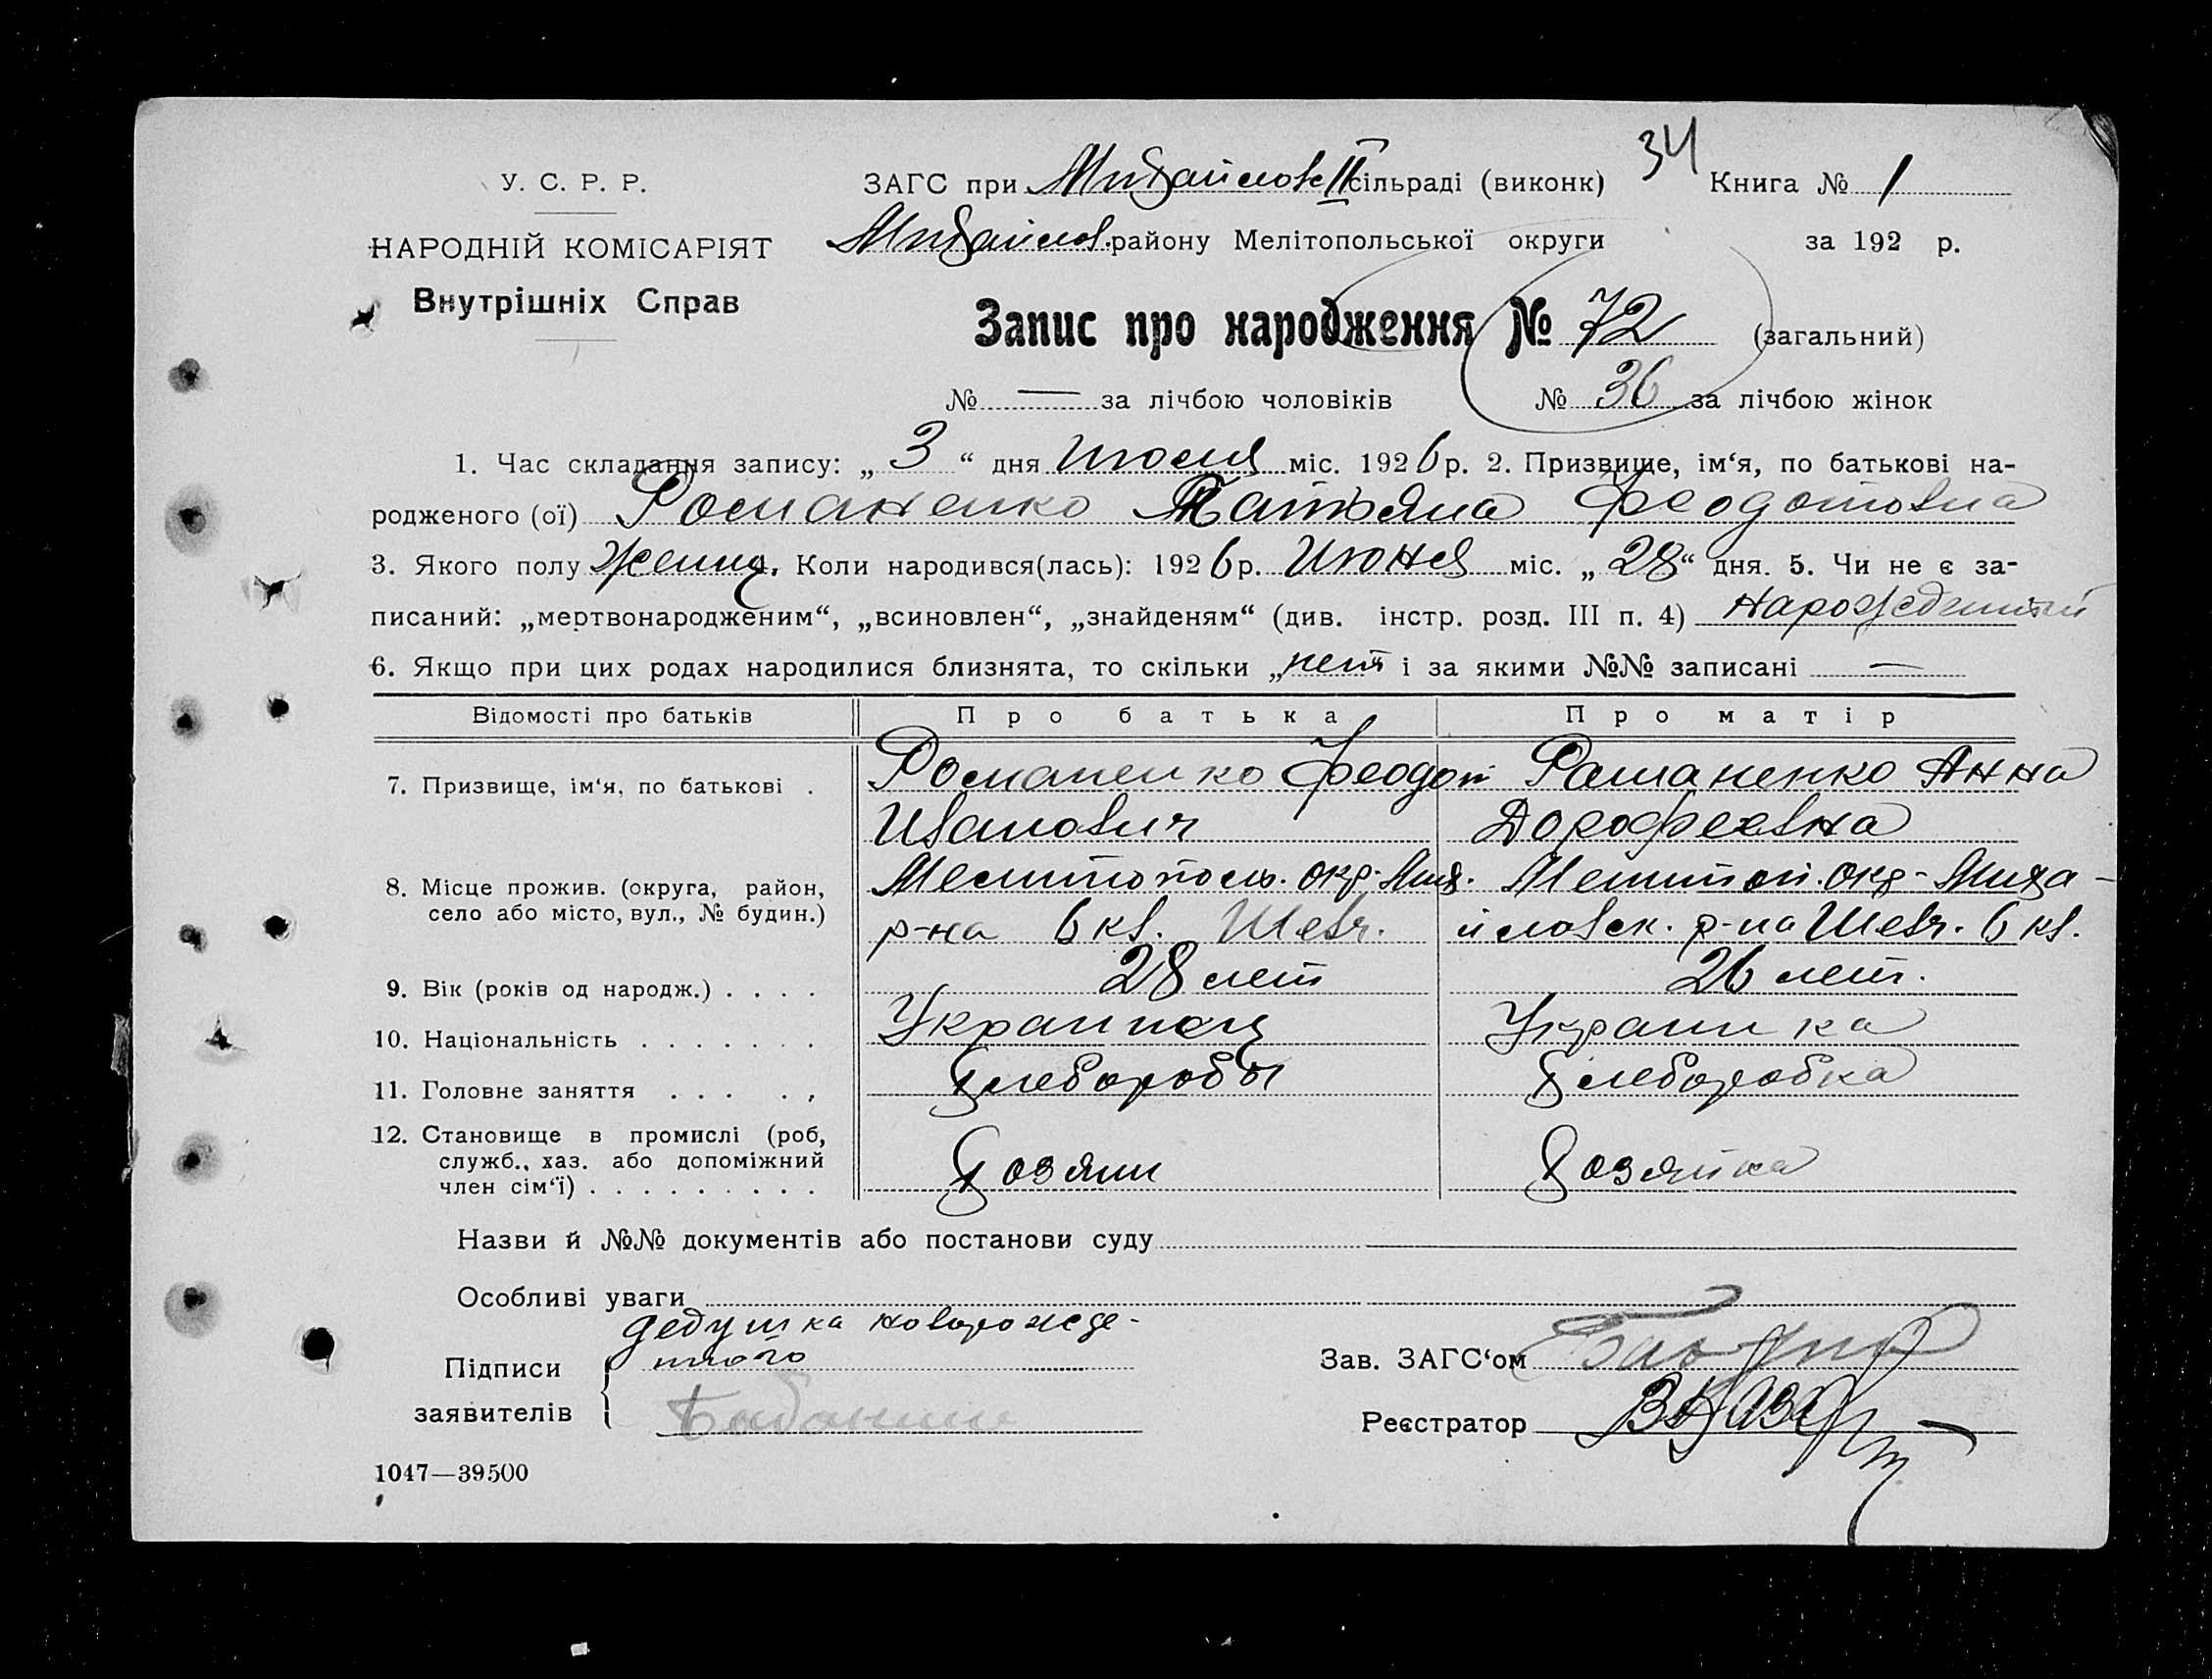 34
У. С. Р. Р.
ЗАГС при Михайловс II сільраді (виконк) Книга № 1
НАРОДНІЙ КОМІСАРІЯТ
Михайлов. району Мелітопольської округи за 192 р.
Внутрішніх Справ
Запис про народження № 72 (загальний)
№ — за лічбою чоловіків № 36 за лічбою жінок
1. Час складання запису: „ 3 “ дня Июля міс. 1926 р. 2. Призвище, ім‘я, по батькові на-
родженого (ої) Романенко Татьяна Феодотовна
3. Якого полу женщ. Коли народився(лась): 1926 р. Июня міс. „ 28 “ дня. 5. Чи не є за-
писаний: „мертвонародженим“, „всиновлен“, „знайденям“ (див. інстр. розд. III п. 4)
6. Якщо при цих родах народилися близнята, то скільки „ нет і за якими №№ записані —
Відомості про батьків Про батька Про матір
7. Призвище, ім‘я, по батькові . Романенко Феодот Раманенко Анна
Иванович Дорофеевна
8. Місце прожив. (округа, район, Мелитополь. окр. Мих. Мелитоп. окр- Миха-
село або місто, вул., № будин.) р-на 6 кв. Шевч. йловск. р-на Шевч. 6 кв.
9. Вік (років од народж.) . . . . 28 лет 26 лет.
10. Національність . . . . . . . Украинец Украинка
11. Головне заняття . . . . , Хлеборобы Хлеборобка
12. Становище в промислі (роб,
служб., хаз. або допоміжний Хозяин Хозяйка
член сім‘ї) . . . . . . . . .
Назви й №№ документів або постанови суду
Особливі уваги
дедушка новорожде-
нного
Підписи
заявителів
Зав. ЗАГС‘ом
Реєстратор
1047—39500